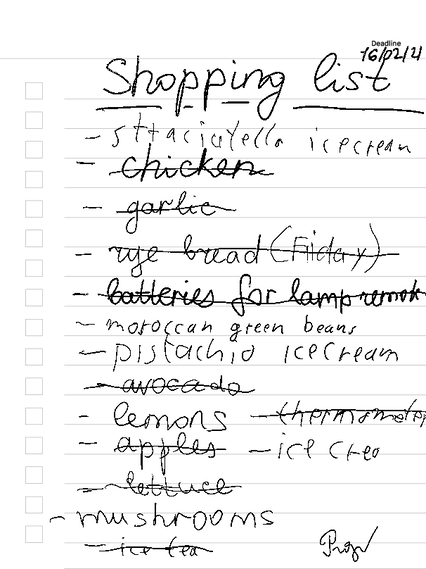 Deadline
16/02/21
Shopping list
- sttaciatella icecream
- chicken
- garlic
- rye bread (Friday)
- batteries for lamp remote
- moroccan green beans
- pistachio icecream
- avocado
- lemons - thermometer
- apples - ice crea
- lettuce
- mushrooms
- ice tea